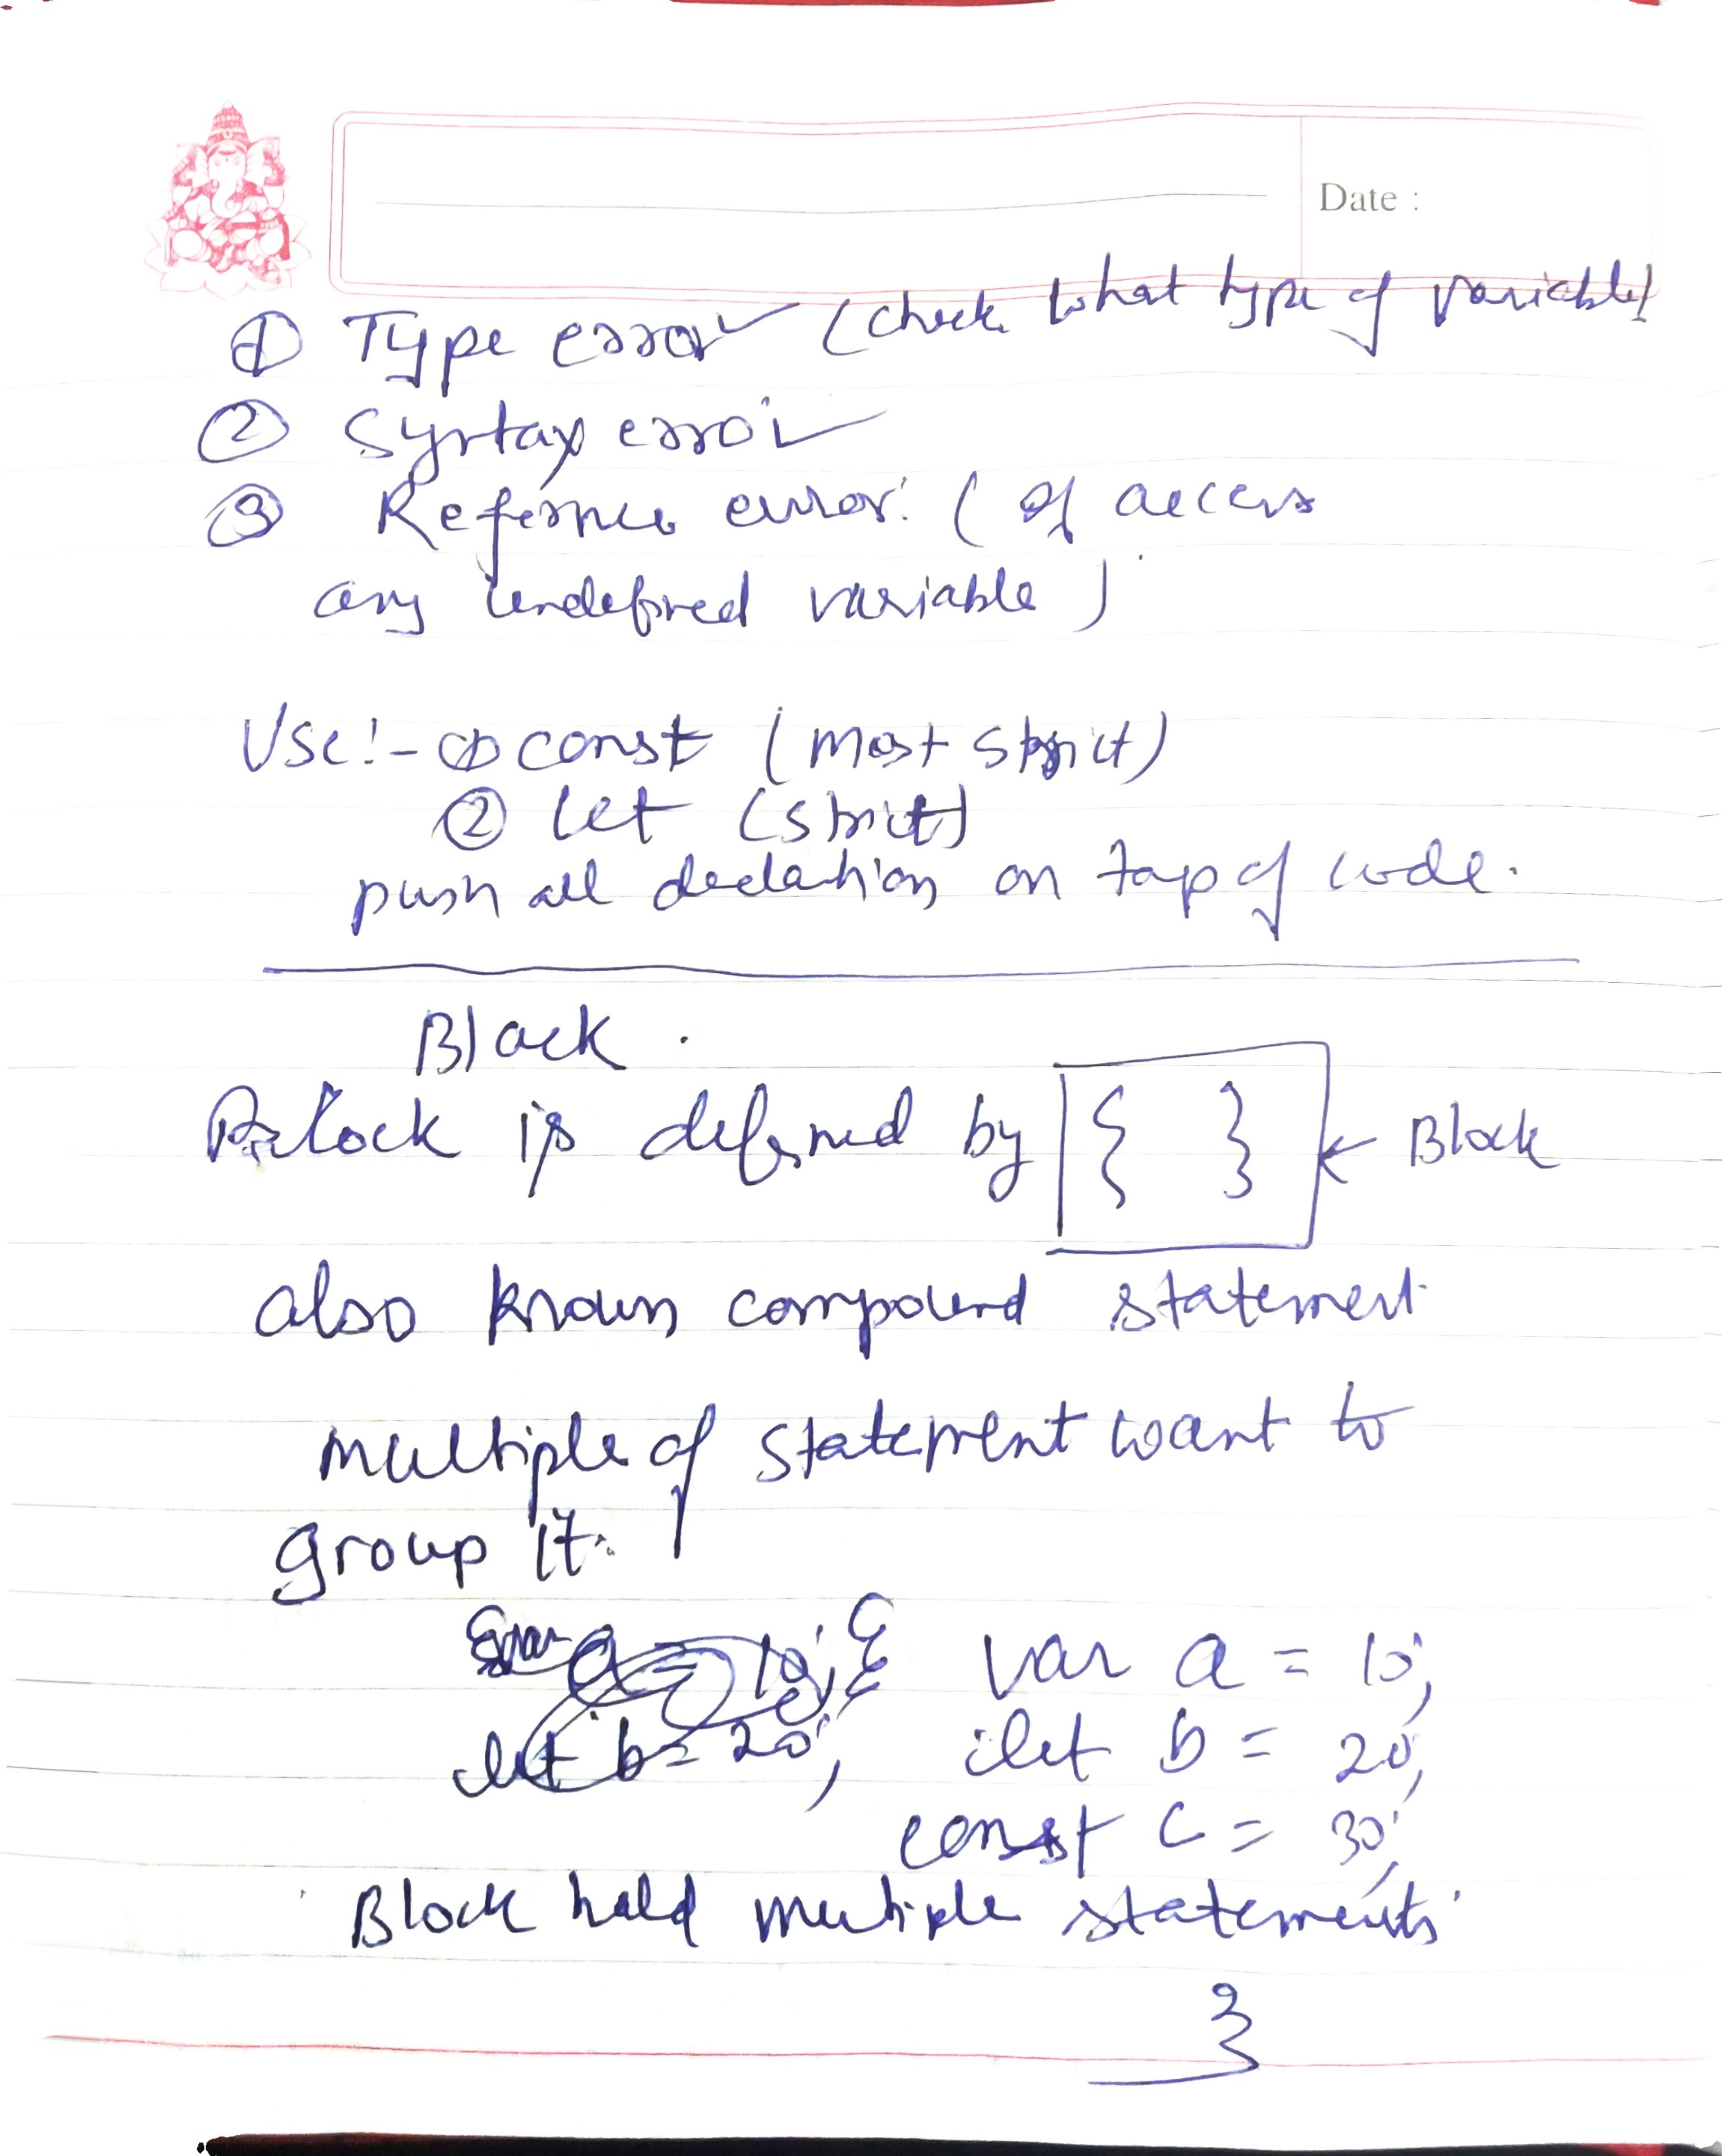 Date :
① Type error (check what type of variable)
② Syntax error
③ Reference error: ( If access
any undefined variable )
Use:- ① const (most strict)
② let (strict)
push all declation on top of code.
Block.
Block is defined by { } ← Block
also known compound statement
multiple of statement want to
group it.
{ var a = 10;
let b = 20; let b = 20;
const c = 30;
Block hold multiple statements
}